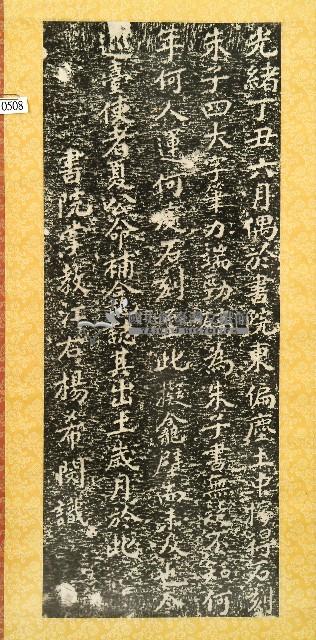 光緒丁丑六月偶於書院東偏塵土中掘得石刻
朱子四大字筆力端勁為朱子書無疑不知何
年何人運何石刻此擬龕壁而未及也
巡臺使者夏公命補其出土歲月於此
書院掌教江右楊希閔識
0508